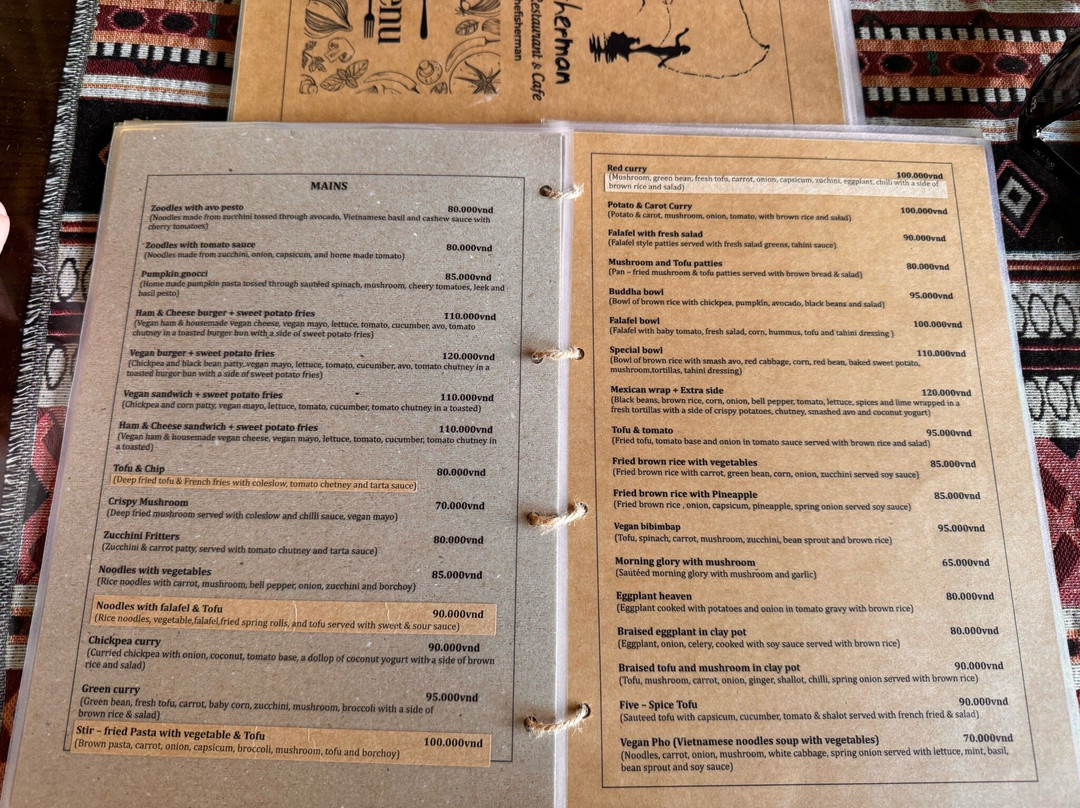 enu
herman
Restaurant & Cafe
hefisherman
MAINS
Zoodles with avo pesto 80.000vnd
(Noodles made from zucchini tossed through avocado, Vietnamese basil and cashew sauce with
cherry tomatoes)
Zoodles with tomato sauce 80.000vnd
(Noodles made from zucchini, onion, capsicum, and home made tomato)
Pumpkin gnocci 85.000vnd
(Home made pumpkin pasta tossed through sautéed spinach, mushroom, cheery tomatoes, leek and
basil pesto)
Ham & Cheese burger + sweet potato fries 110.000vnd
(Vegan ham & housemade vegan cheese, vegan mayo, lettuce, tomato, cucumber, avo, tomato
chutney in a toasted burger bun with a side of sweet potato fries)
Vegan burger + sweet potato fries 120.000vnd
(Chickpea and black bean patty, vegan mayo, lettuce, tomato, cucumber, avo, tomato chutney in a
toasted burger bun with a side of sweet potato fries)
Vegan sandwich + sweet potato fries 110.000vnd
(Chickpea and corn patty, vegan mayo, lettuce, tomato, cucumber, tomato chutney in a toasted)
Ham & Cheese sandwich + sweet potato fries 110.000vnd
(Vegan ham & housemade vegan cheese, vegan mayo, lettuce, tomato, cucumber, tomato chutney in
a toasted)
Tofu & Chip 80.000vnd
(Deep fried tofu & French fries with coleslow, tomato chetney and tarta sauce)
Crispy Mushroom 70.000vnd
(Deep fried mushroom served with coleslow and chilli sauce, vegan mayo)
Zucchini Fritters 80.000vnd
(Zucchini & carrot patty, served with tomato chutney and tarta sauce)
Noodles with vegetables 85.000vnd
(Rice noodles with carrot, mushroom, bell pepper, onion, zucchini and borchoy)
Noodles with falafel & Tofu 90.000vnd
(Rice noodles, vegetable,falafel,fried spring rolls, and tofu served with sweet & sour sauce)
Chickpea curry 90.000vnd
(Curried chickpea with onion, coconut, tomato base, a dollop of coconut yogurt with a side of brown
rice and salad)
Green curry 95.000vnd
(Green bean, fresh tofu, carrot, baby corn, zucchini, mushroom, broccoli with a side of
brown rice & salad)
Stir – fried Pasta with vegetable & Tofu 100.000vnd
(Brown pasta, carrot, onion, capsicum, broccoli, mushroom, tofu and borchoy)
Red curry 100.000vnd
(Mushroom, green bean, fresh tofu, carrot, onion, capsicum, zuchini, eggplant, chilli with a side of
brown rice and salad)
Potato & Carot Curry 100.000vnd
(Potato & carot, mushroom, onion, tomato, with brown rice and salad)
Falafel with fresh salad 90.000vnd
(Falafel style patties served with fresh salad greens, tahini sauce)
Mushroom and Tofu patties 80.000vnd
(Pan – fried mushroom & tofu patties served with brown bread & salad)
Buddha bowl 95.000vnd
(Bowl of brown rice with chickpea, pumpkin, avocado, black beans and salad)
Falafel bowl 100.000vnd
(Falafel with baby tomato, fresh salad, corn, hummus, tofu and tahini dressing )
Special bowl 110.000vnd
(Bowl of brown rice with smash avo, red cabbage, corn, red bean, baked sweet potato,
mushroom,tortillas, tahini dressing)
Mexican wrap + Extra side 120.000vnd
(Black beans, brown rice, corn, onion, bell pepper, tomato, lettuce, spices and lime wrapped in a
fresh tortillas with a side of crispy potatoes, chutney, smashed avo and coconut yogurt)
Tofu & tomato 95.000vnd
(Fried tofu, tomato base and onion in tomato sauce served with brown rice and salad)
Fried brown rice with vegetables 85.000vnd
(Fried brown rice with carrot, green bean, corn, onion, zucchini served soy sauce)
Fried brown rice with Pineapple 85.000vnd
(Fried brown rice , onion, capsicum, pineapple, spring onion served soy sauce)
Vegan bibimbap 95.000vnd
(Tofu, spinach, carrot, mushroom, zucchini, bean sprout and brown rice)
Morning glory with mushroom 65.000vnd
(Sautéed morning glory with mushroom and garlic)
Eggplant heaven 80.000vnd
(Eggplant cooked with potatoes and onion in tomato gravy with brown rice)
Braised eggplant in clay pot 80.000vnd
(Eggplant, onion, celery, cooked with soy sauce served with brown rice)
Braised tofu and mushroom in clay pot 90.000vnd
(Tofu, mushroom, carrot, onion, ginger, shallot, chilli, spring onion served with brown rice)
Five – Spice Tofu 90.000vnd
(Sauteed tofu with capsicum, cucumber, tomato & shalot served with french fried & salad)
Vegan Pho (Vietnamese noodles soup with vegetables) 70.000vnd
(Noodles, carrot, onion, mushroom, white cabbage, spring onion served with lettuce, mint, basil,
bean sprout and soy sauce)